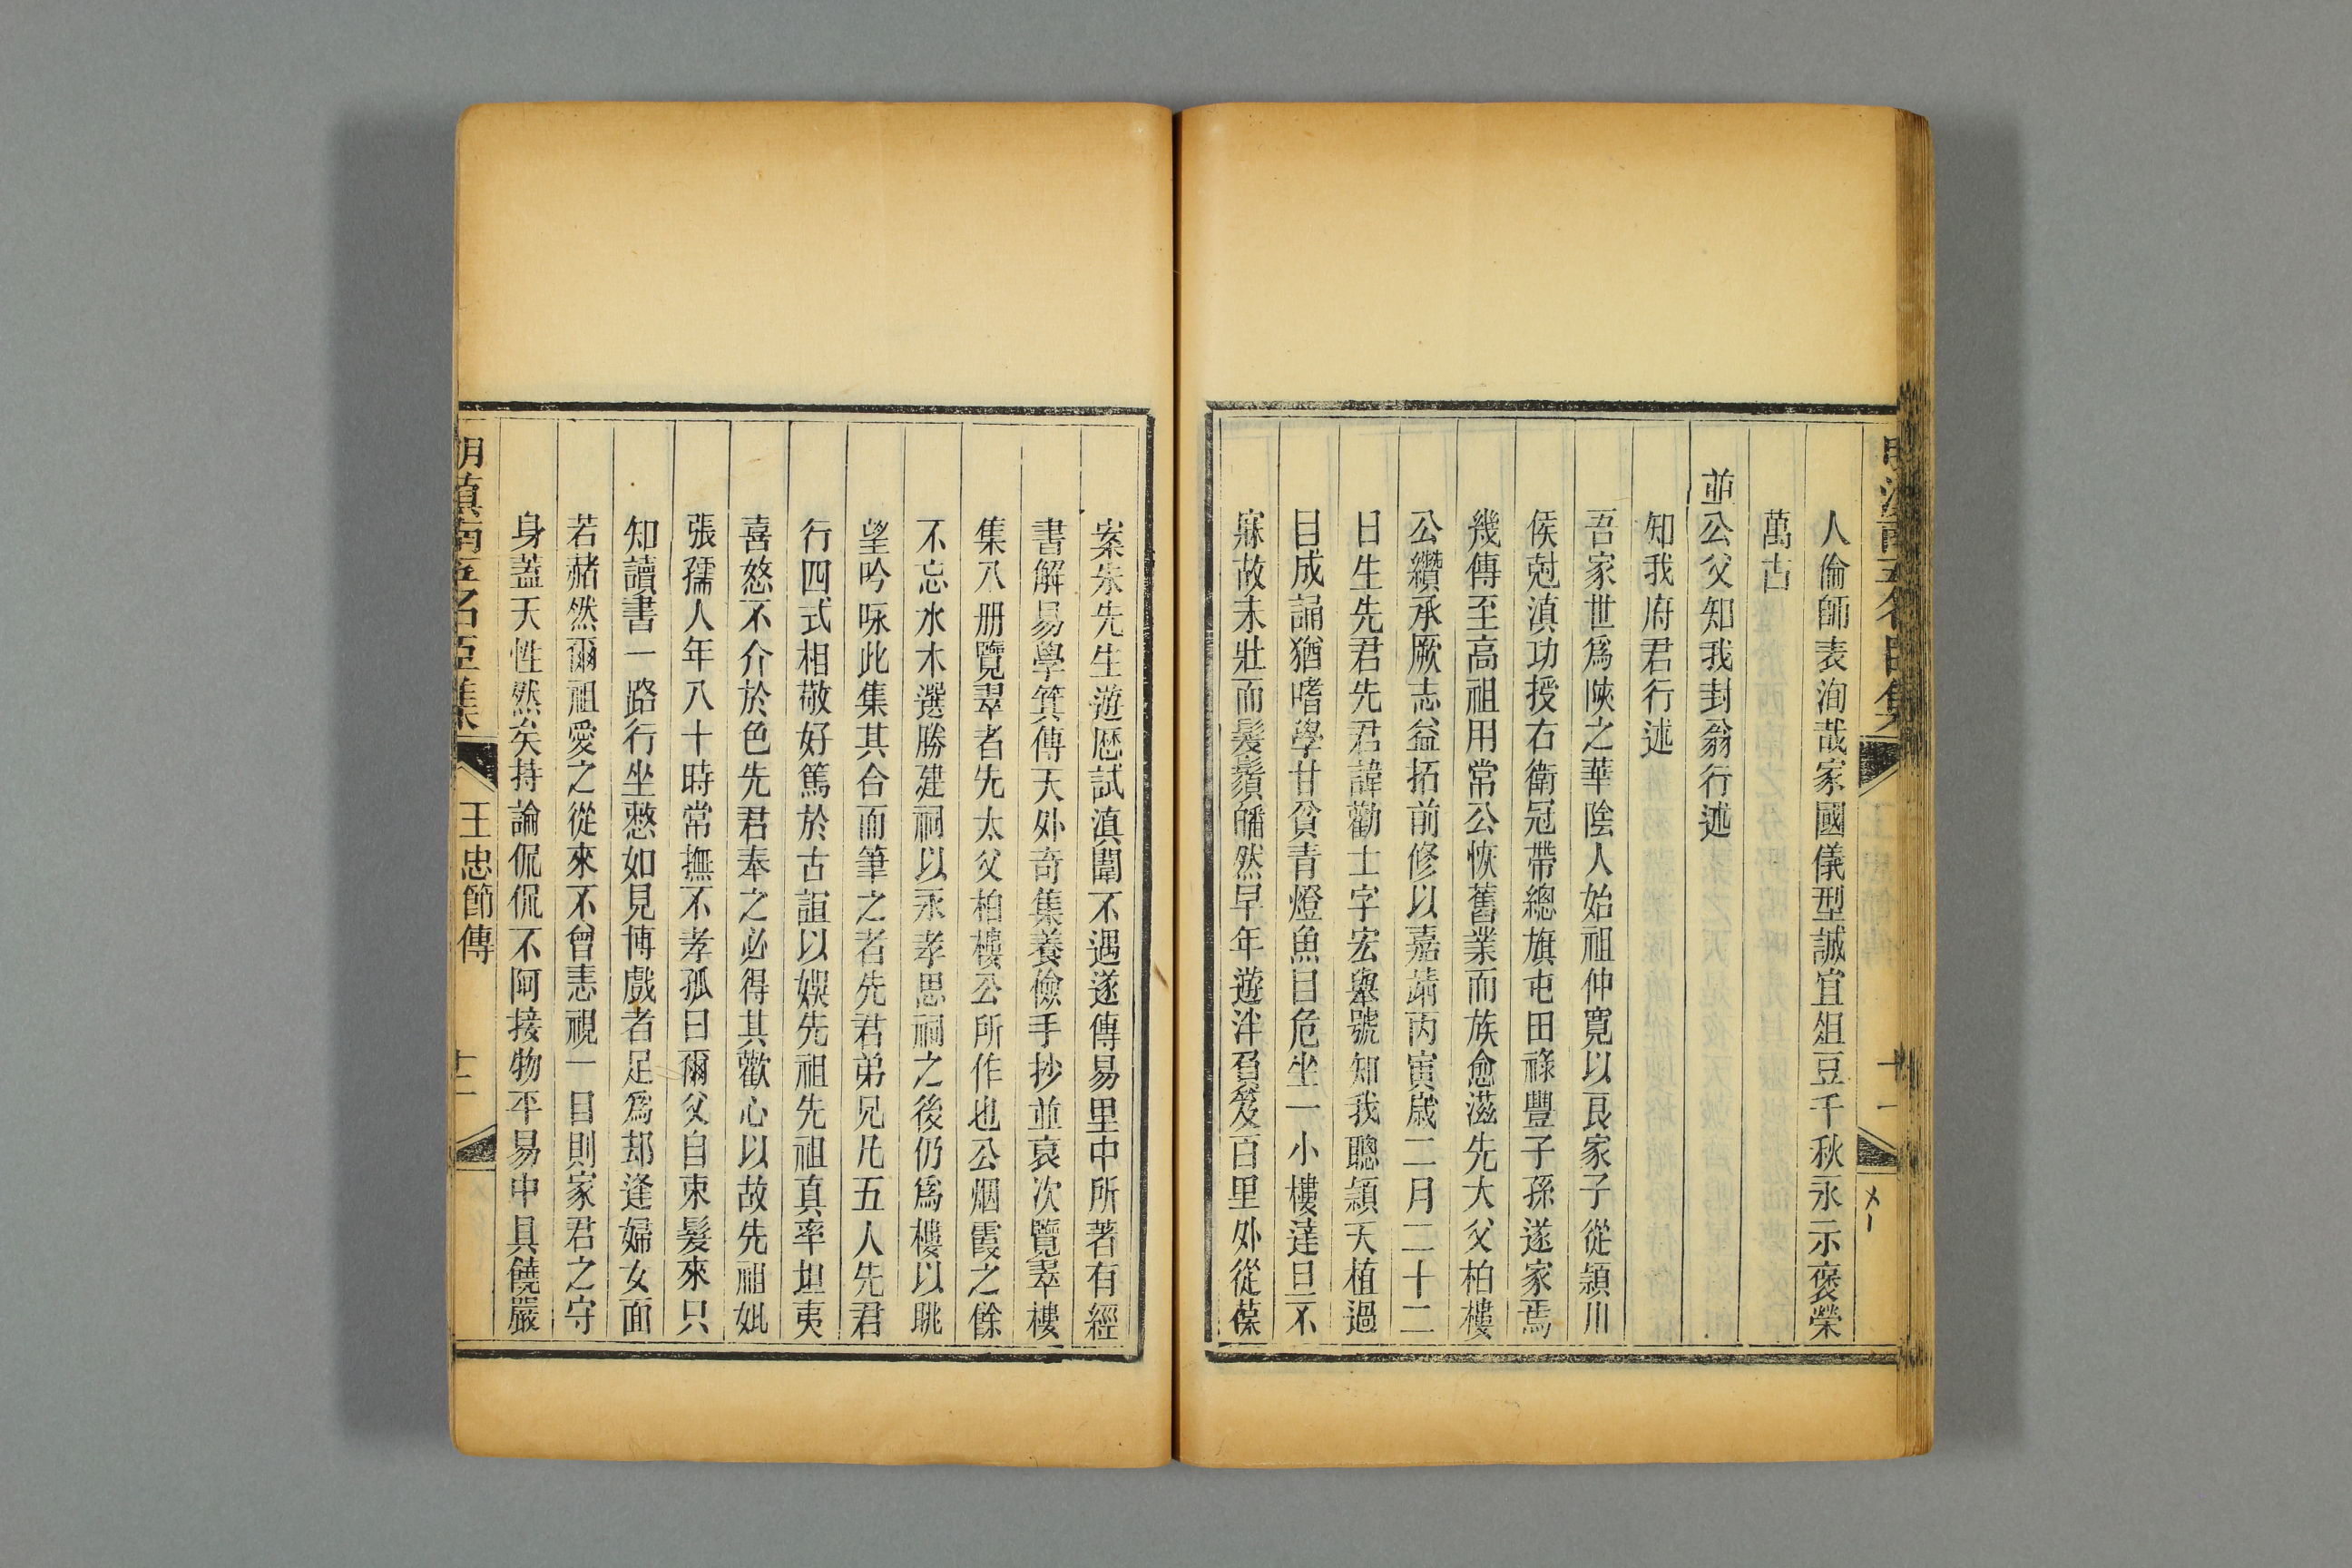 人倫師表洵哉家國儀型誠宜俎豆千秋永示褒榮
萬古
並公父知我封翁行述
知我府君行述
吾家世爲陝之華陰人始祖仲寬以良家子從潁川
侯尅滇功授右衛冠帶總旗屯田祿豐子孫遂家焉
幾傳至高祖用常公恢舊業而族愈滋先大父柏樓
公纘承厥志益拓前修以嘉靖丙寅歲二月二十二
日生先君先君諱勸士字宏舉號知我聰穎天植過
目成誦猶嗜學甘貧青燈魚目危坐一小樓達旦不
寐故未壯而髮鬚皤然早年遊泮負笈百里外從葆
案朱先生遊歷試滇闈不遇遂傳易里中所著有經
書解易學箕傳天外奇集養儉手抄並哀次覽翠樓
集八册覽翠者先太父柏樓公所作也公烟霞之餘
不忘水木選勝建祠以永孝思祠之後仍爲樓以眺
望吟咏此集其合而筆之者先君弟兄凡五人先君
行四式相敬好篤於古誼以娛先祖先祖真率坦夷
喜怒不介於色先君奉之必得其歡心以故先祖妣
張孺人年八十時常撫不孝孤曰爾父自束髮來只
知讀書一路行坐憖如見博戲者足爲却逢婦女面
若赭然爾祖愛之從來不曾恚視一目則家君之守
身蓋天性然矣持論侃侃不阿接物平易中具饒嚴
明滇南五名臣集
王忠節傳
十二